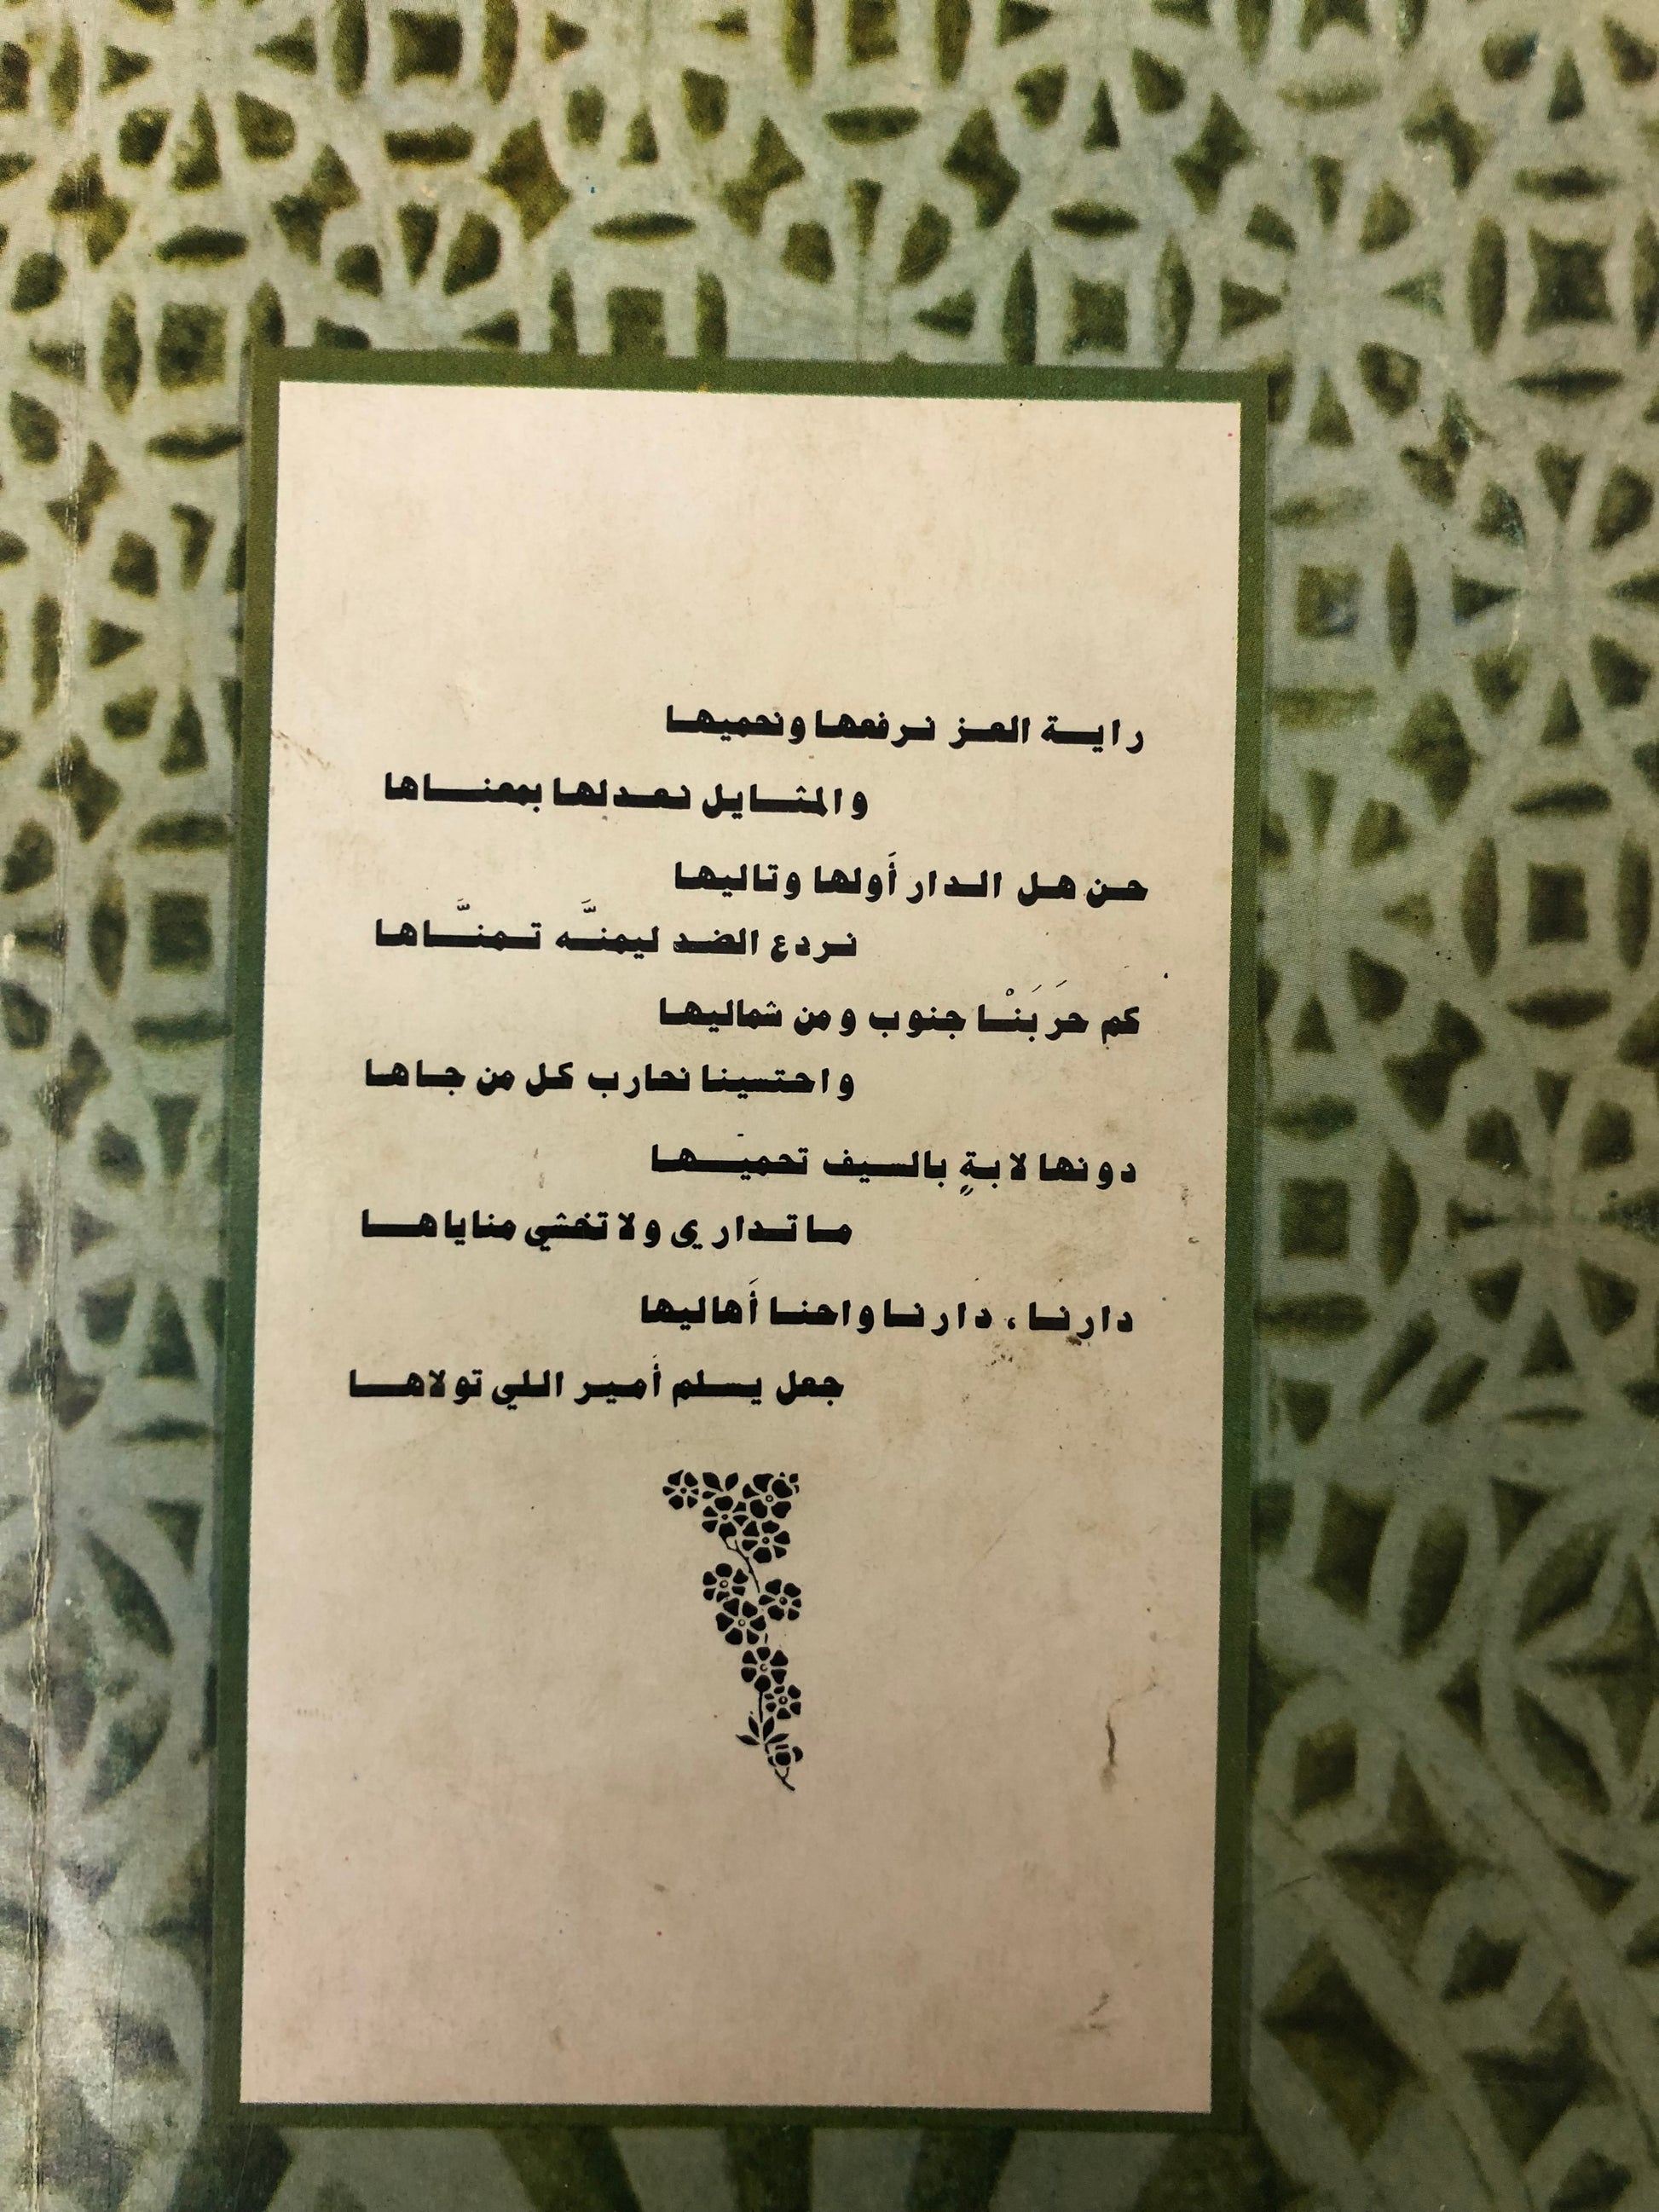 راية العز نرفعها ونحميها
والمثايل نعدلها بمعناها
حن هل الدار أَولها وتاليها
نردع الضد ليمنَّه تمنَّاها
كم حرَبَنْا جنوب ومن شماليها
واحتسينا نحارب كل من جاها
دونها لابةٍ بالسيف تحميها
ماتداري ولاتخشي مناياها
دارنا، دارنا واحنا أَهاليها
جعل يسلم أمير اللي تولاها